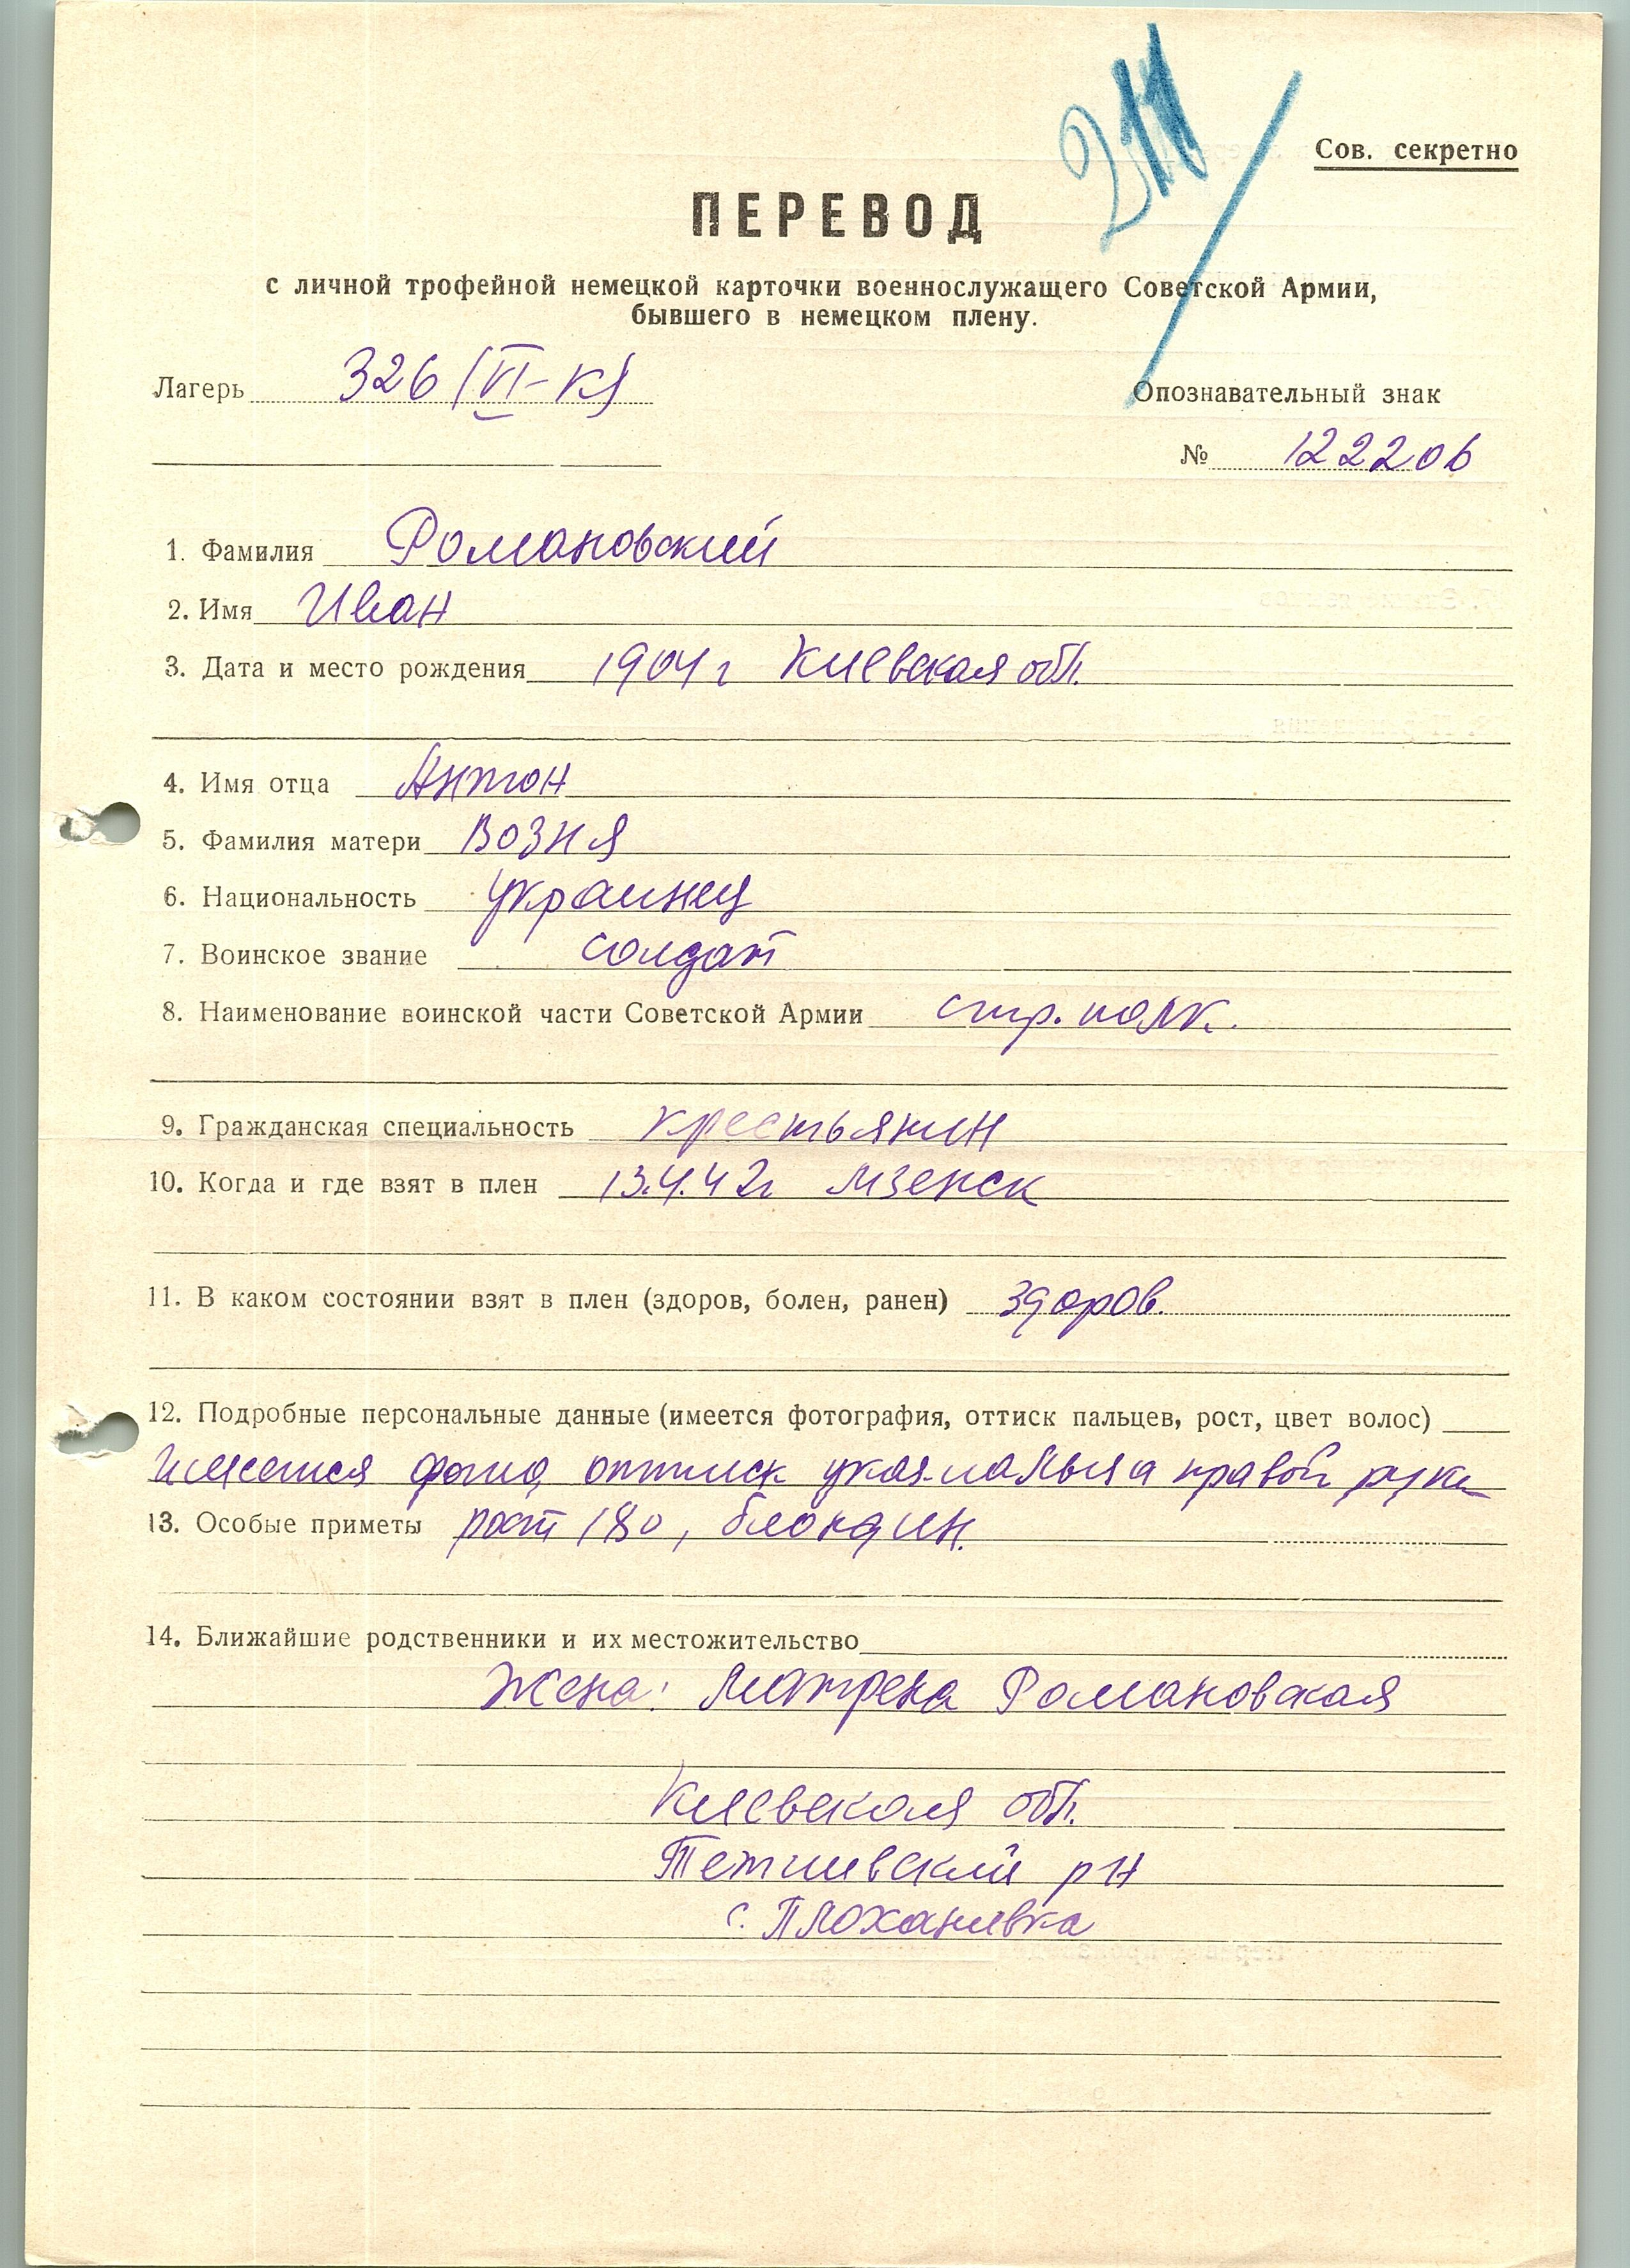 Сов. секретно
ПЕРЕВОД
с личной трофейной немецкой карточки военнослужащего Советской Армии,
бывшего в немецком плену.
Лагерь 326 (VI-К)
Опознавательный знак
№ 122206
1. Фамилия Романовский
2. Имя Иван
3. Дата и место рождения 1904 г Киевская обл.
4. Имя отца Антон
5. Фамилия матери Возня
6. Национальность украинец
7. Воинское звание солдат
8. Наименование воинской части Советской Армии стр. полк.
9. Гражданская специальность крестьянин
10. Когда и где взят в плен 13.4.42г Мзенск
11. В каком состоянии взят в плен (здоров, болен, ранен) здоров.
12. Подробные персональные данные (имеется фотография, оттиск пальцев, рост, цвет волос)
имеется фото, оттиск указ. пальца правой руки
13. Особые приметы рост 180, блондин.
14. Ближайшие родственники и их местожительство
Жена: Матрена Романовская
Киевская обл.
Тетиевский рн
с. Плоханивка